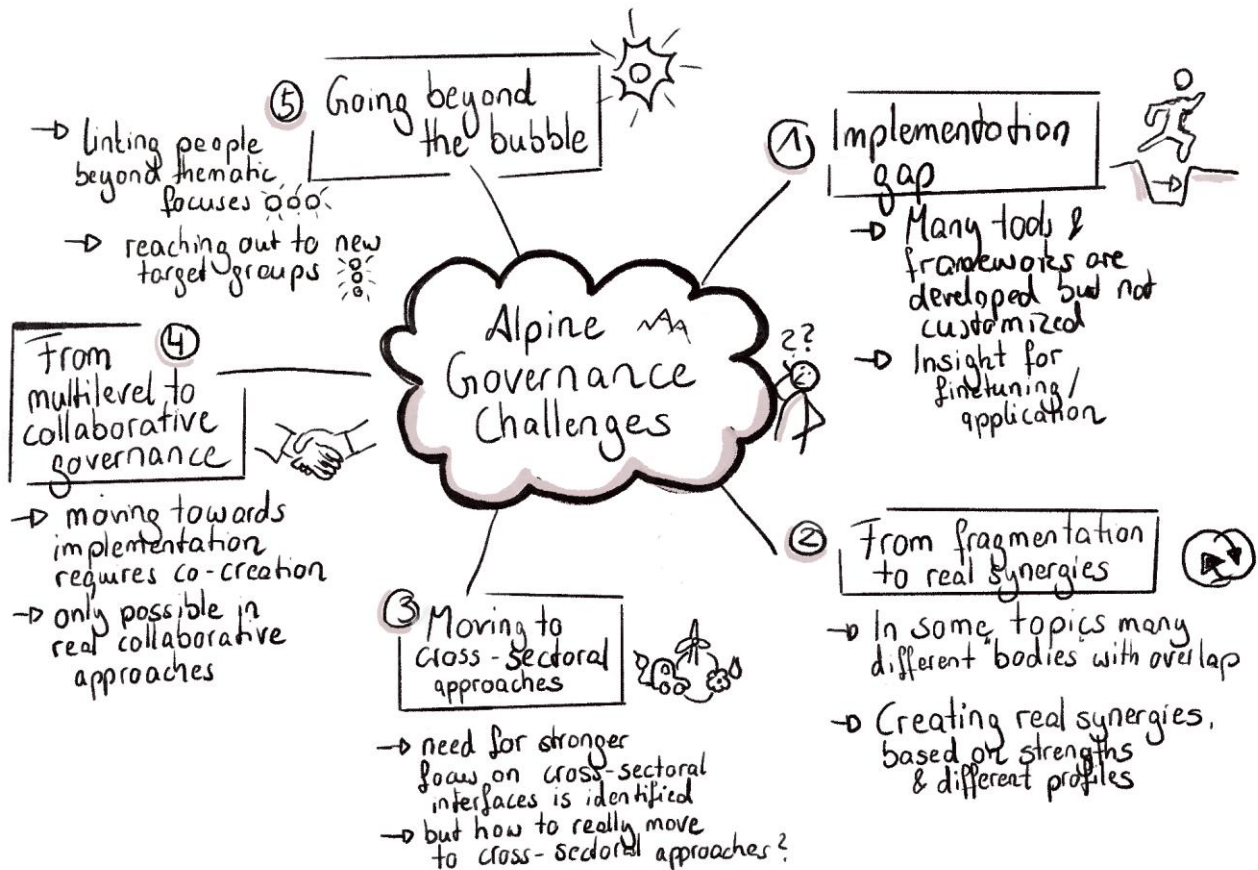 Alpine
Governance
Challenges
??
1 Implementation
gap
Many tools &
frameworks are
developed but not
customized
Insight for
finetuning/
application
2 From fragmentation
to real synergies
In some topics many
different "bodies" with overlap
Creating real synergies,
based on strengths
& different profiles
3 Moving to
cross-sectoral
approaches
need for stronger
focus on cross-sectoral
interfaces is identified
but how to really move
to cross-sectoral approaches?
4 From
multilevel to
collaborative
governance
moving towards
implementation
requires co-creation
only possible in
real collaborative
approaches
5 Going beyond
the bubble
linking people
beyond thematic
focuses
reaching out to new
target groups